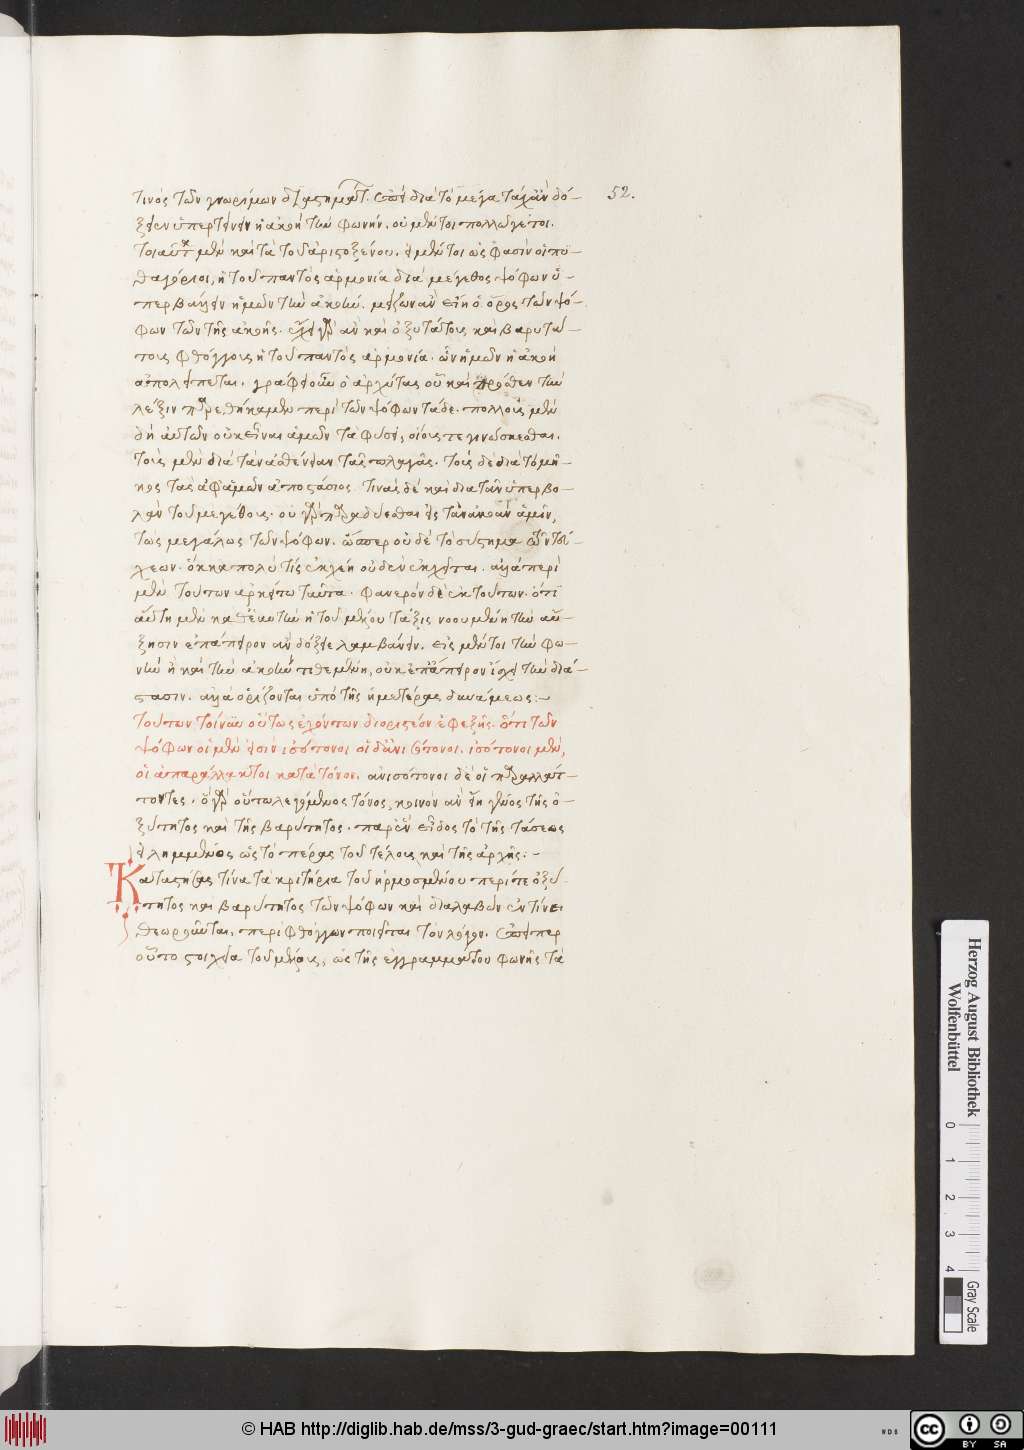 τινὸς τῶν γνωρίμων διαστημάτ. ἐπεὶ διὰ τὸ μέγα τάχ' ἂν δό- 52.
ξειεν ὑπερτείνειν ἡ ἀκοὴ τὴν φωνήν. οὐ μέντοι πολλῷ γέ τοι.
τοιαῦτ μὲν καὶ τὰ τοῦ ἀριστοξένου. εἰ μέντοι ὡς φασὶν οἱ πυ-
θαγόρειοι, ἡ τοῦ παντὸς ἁρμονία διὰ μέγεθος ψόφων ὑ-
περβαίνειν ἡμῶν τὴν ἀκοὴν. μείζων ἂν εἴη ὁ ὅρος τῶν ψό-
φων τῶν τῆς ἀκοῆς. εἶχε γὰρ ἂν καὶ ὀξυτάτοις καὶ βαρυτά-
τοις φθόγγοις ἡ τοῦ παντὸς ἁρμονία. ὧν ἡμῶν ἡ ἀκοὴ
ἀπολείπεται. γράφει οὖν ὁ ἀρχύτας οὗ καὶ πρόσθεν τὴν
λέξιν παρεθήκαμεν περὶ τῶν ψόφων τάδε. πολλοὺς μὲν
δὴ αὐτῶν οὐκ εἶναι ἁμῶν τᾷ φύσει, οἵοις τε γινώσκεσθαι.
τοὺς μὲν διὰ τὰν ἀσθένειαν τᾶς πλαγᾶς. τοὺς δὲ διὰ τὸ μῆ-
κος τᾶς ἀφ' ἁμῶν ἀποστάσιος. τινὰς δὲ καὶ διὰ τὰν ὑπερβο-
λὰν τοῦ μεγέθους. οὐ γὰρ παραδύεσθαι εἰς τὰν ἀκοὰν ἁμῖν,
τὼς μεγάλως τῶν ψόφων. ὥσπερ οὐδὲ τὸ σύστημα τῶν τευ-
χέων. ὅκκα πολύ τις ἐκχέῃ οὐδὲν ἐκχεῖται. ἀλλὰ περὶ
μὲν τούτων ἀρκείτω ταῦτα. φανερὸν δὲ ἐκ τούτων. ὅτι
αὕτη μὲν καθ' ἑαυτὴν ἡ τοῦ μέλους τάξις νοουμένη τὴν αὔ-
ξησιν ἐπ' ἄπειρον ἂν δόξειε λαμβάνειν. εἰς μέντοι τὴν φω-
νὴν ἢ καὶ τὴν ἀκοὴν τιθεμένη, οὐκ ἐπ' ἄπειρον ἴσχει τὴν διά-
στασιν. ἀλλὰ ὁρίζονται ὑπὸ τῆς ἡμετέρας δυνάμεως:-
Τούτων τοίνυν οὕτως ἐχόντων διοριστέον ἐφεξῆς. ὅτι τῶν
ψόφων οἱ μέν εἰσιν ἰσότονοι οἱ δ' ἀνισότονοι. ἰσότονοι μὲν,
οἱ ἀπαράλλακτοι κατὰ τόνον. ἀνισότονοι δὲ οἱ παραλλάτ-
τοντες. ὁ γὰρ οὕτω λεγόμενος τόνος, κοινὸν ἂν εἴη γένος τῆς ὀ-
ξύτητος καὶ τῆς βαρύτητος. παρ' ἓν εἶδος τὸ τῆς τάσεως
εἰλημμένος ὡς τὸ πέρας τοῦ τέλους καὶ τῆς ἀρχῆς:-
Καταστήσας τίνα τὰ κριτήρια τοῦ ἡρμοσμένου περί τε ὀξύ-
τητος καὶ βαρύτητος τῶν ψόφων καὶ διαλαβὼν ἐν τίνι
θεωροῦνται, περὶ φθόγγων ποιεῖται τὸν λόγον. ἐπείπερ
οὗτοι στοιχεῖα τοῦ μέλους, ὡς τῆς ἐγγραμμάτου φωνῆς τὰ
Herzog August Bibliothek
Wolfenbüttel
0 1 2 3 4
Gray Scale
© HAB http://diglib.hab.de/mss/3-gud-graec/start.htm?image=00111
cc BY SA